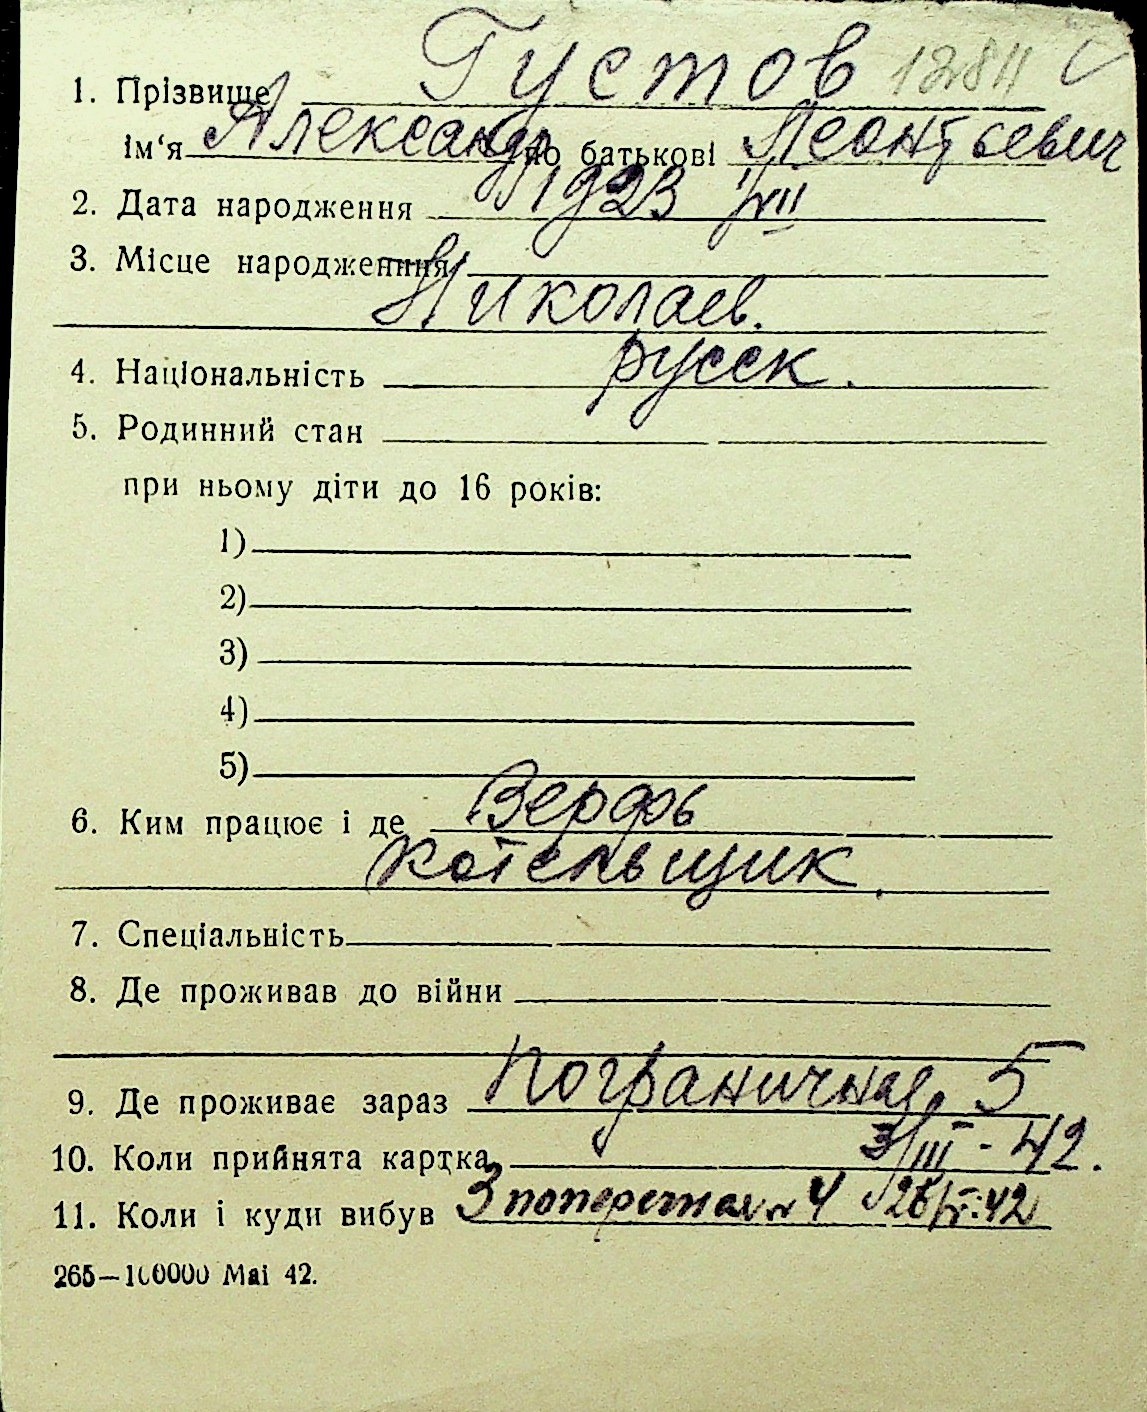 1. Прізвище Густов 12811
ім‘я Александр по батькові Леонтьевич
2. Дата народження 1923 1/VII
3. Місце народженння
Николаев.
4. Національність русск.
5. Родинний стан
при ньому діти до 16 років:
1)
2)
3)
4)
5)
6. Ким працює і де Верфь
котельщик.
7. Спеціальність
8. Де проживав до війни
9. Де проживає зараз Пограничная 5
10. Коли прийнята картка 3/III - 42.
11. Коли і куди вибув 3 поперечная 4
265—100000 Mai 42.